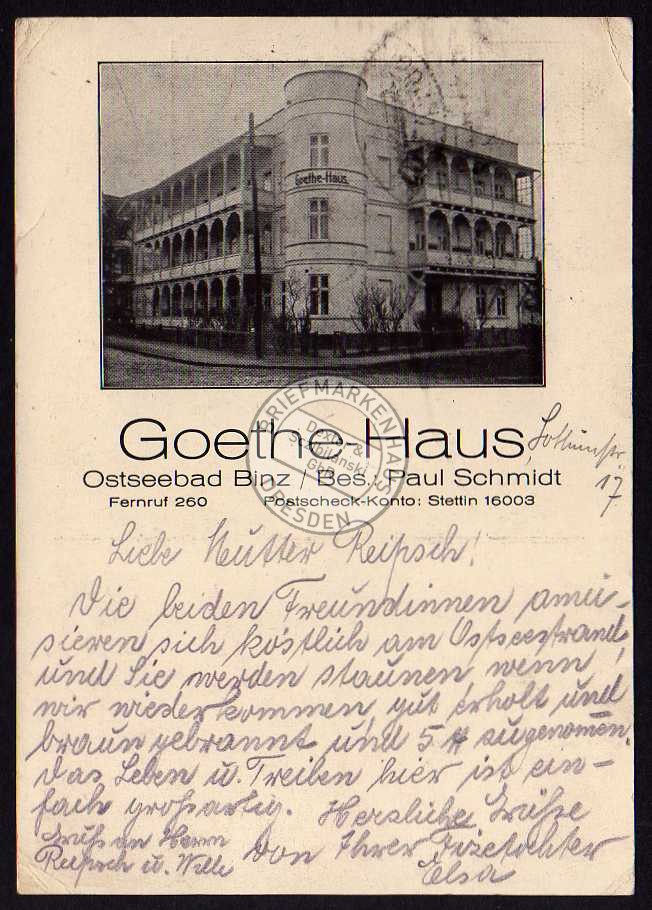 Goethe-Haus.
BRIEFMARKENHAUS
Dexler &
Schpilanski
GbR
DRESDEN
Goethe-Haus
17
7
Ostseebad Binz / Bes.: Paul Schmidt
Fernruf 260 Postscheck-Konto: Stettin 16003
Liebe Mutter Reipsch!
Die beiden Freundinnen amü-
sieren sich köstlich am Ostseestrand
und Sie werden staunen, wenn
wir wiederkommen, gut erholt und
braun gebrannt und 5 ℔ zugenomen̄.
Das Leben u. Treiben hier ist ein-
fach großartig. Herzliche Grüße
von Ihrer Vizetochter
Elsa
Gruß an Herrn
Reipsch u. Willi